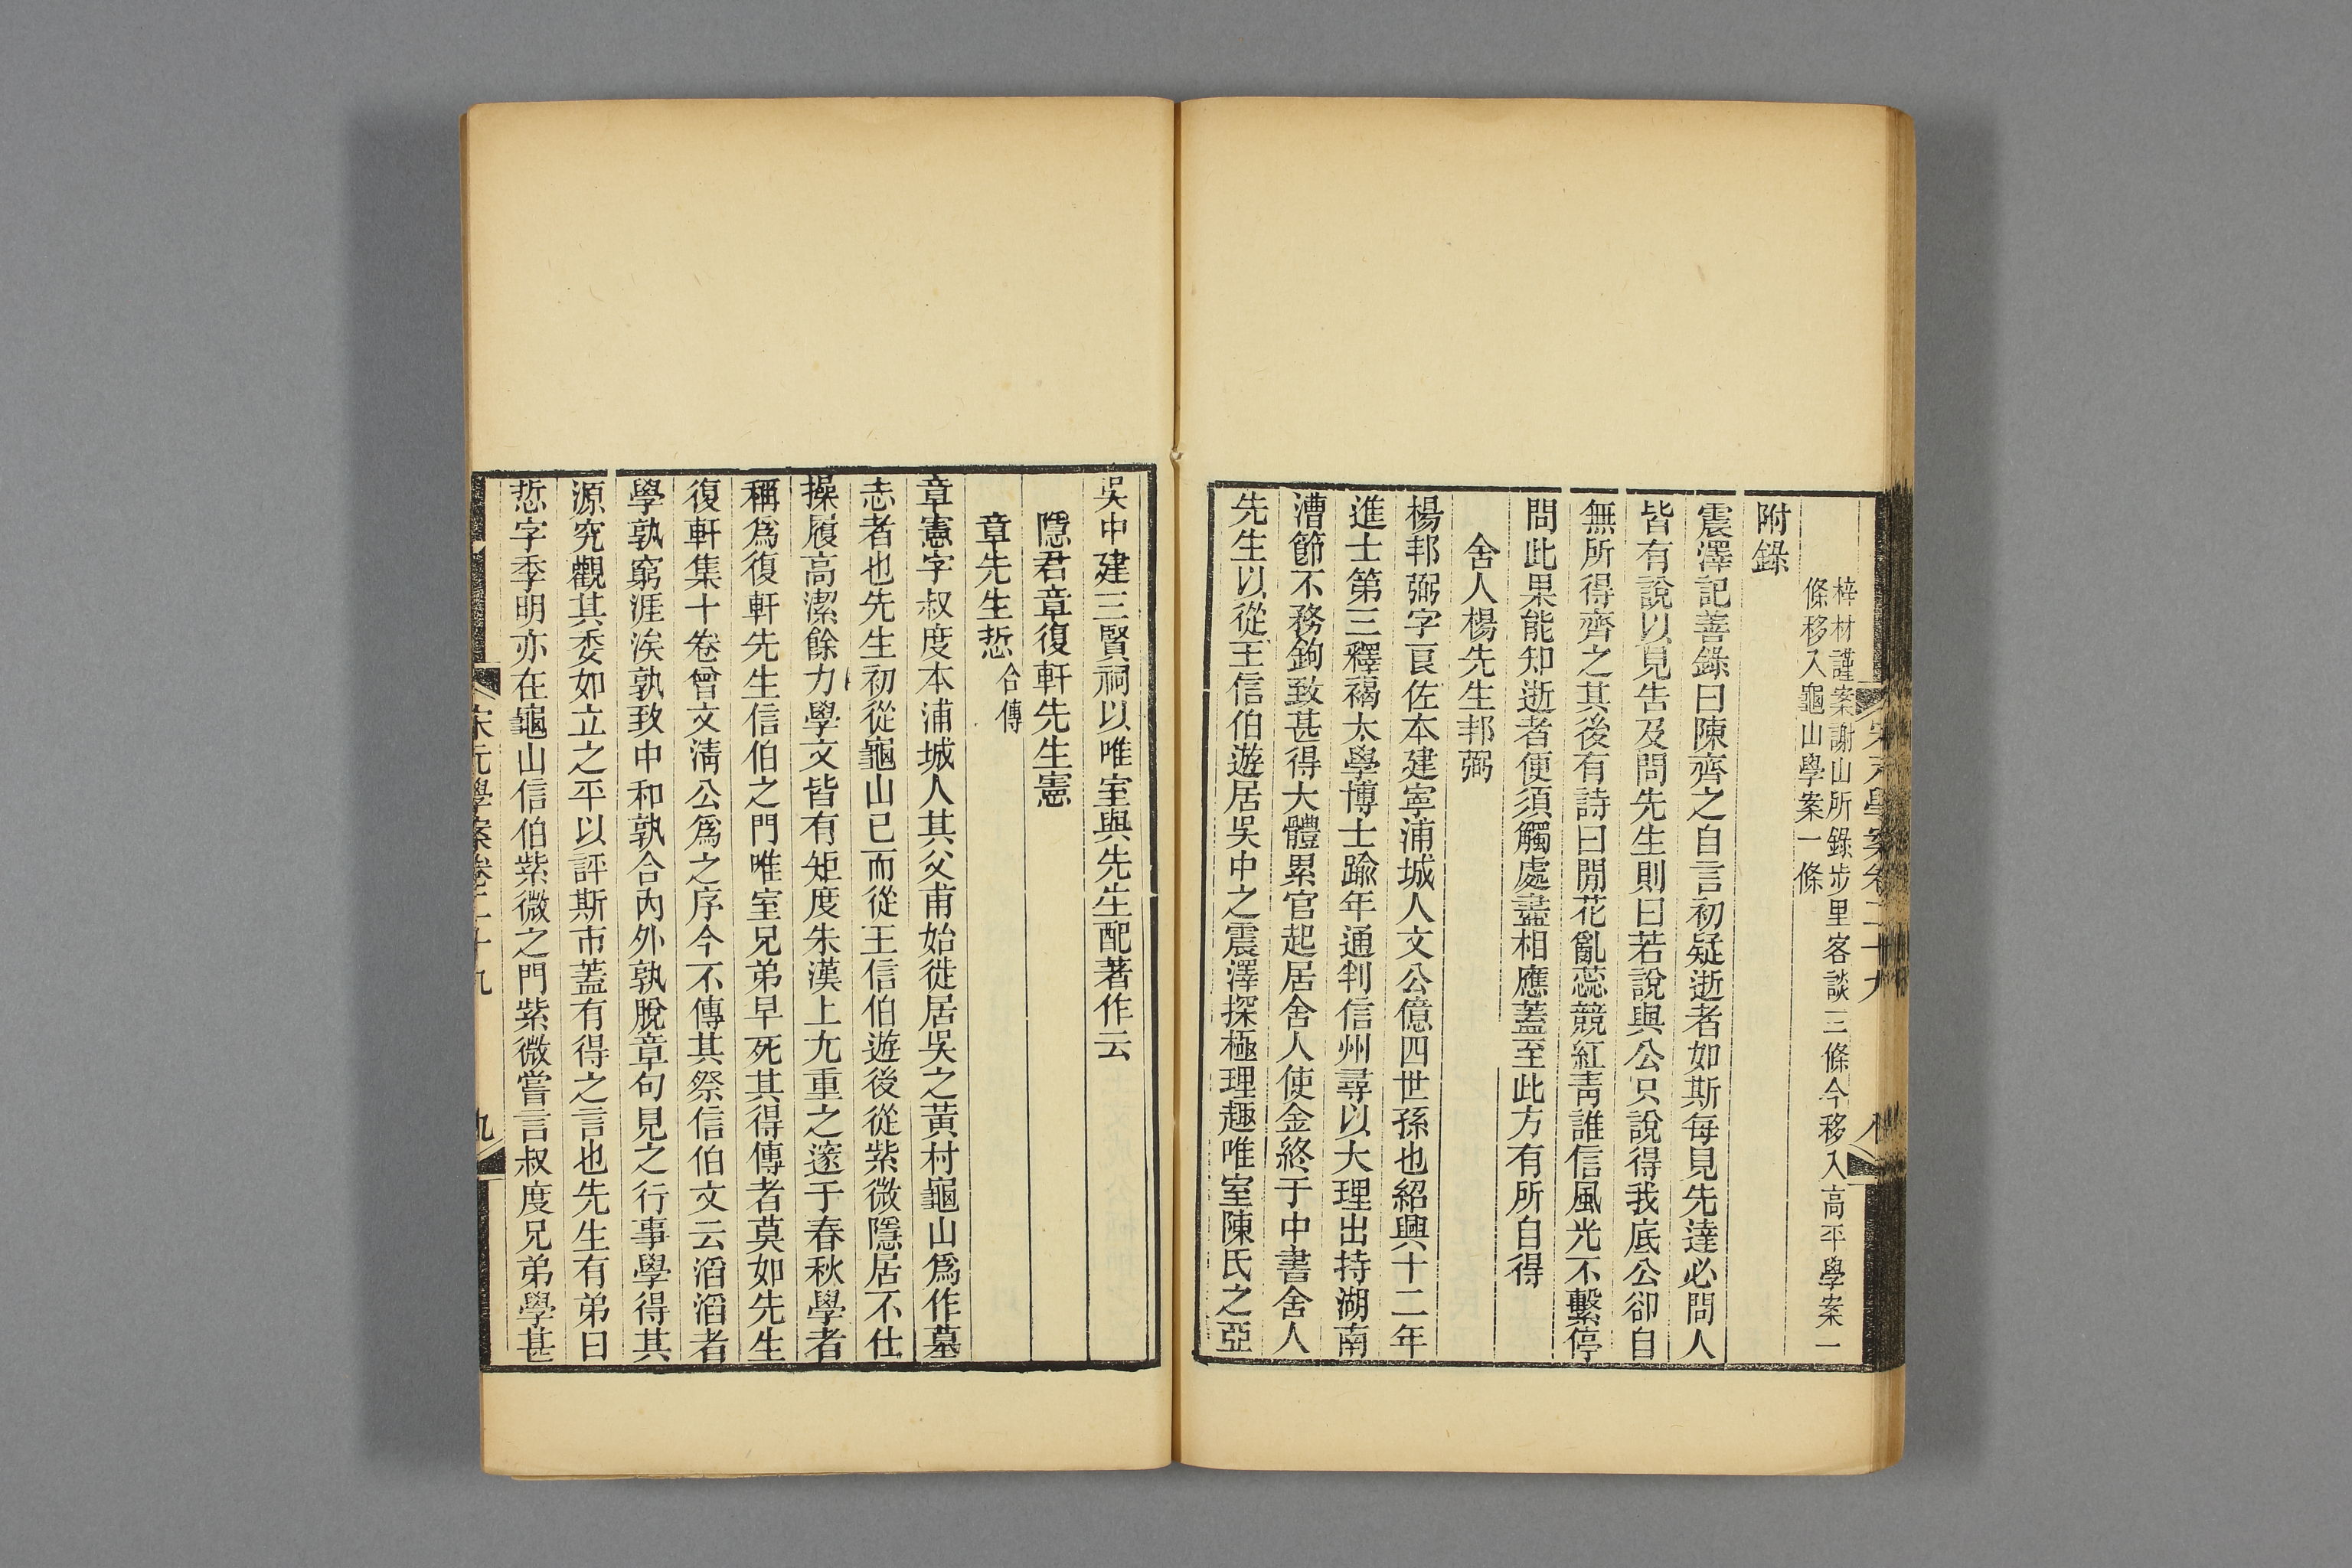 宋元學案卷二十九
八
梓材謹案謝山所錄步里客談三條今移入高平學案一
條移入龜山學案一條
附錄
震澤記善錄曰陳齊之自言初疑逝者如斯每見先達必問人
皆有說以見告及問先生則曰若說與公只說得我底公卻自
無所得齊之其後有詩曰閒花亂蕊競紅青誰信風光不繫停
問此果能知逝者便須觸處盡相應蓋至此方有所自得
舍人楊先生邦弼
楊邦弼字良佐本建寧浦城人文公億四世孫也紹興十二年
進士第三釋褐太學博士踰年通判信州尋以大理出持湖南
漕節不務鉤致甚得大體累官起居舍人使金終于中書舍人
先生以從王信伯遊居吳中之震澤探極理趣唯室陳氏之亞
吳中建三賢祠以唯室與先生配著作云
隱君章復軒先生憲
章先生悊合傳
章憲字叔度本浦城人其父甫始徙居吳之黃村龜山爲作墓
志者也先生初從龜山已而從王信伯遊後從紫微隱居不仕
操履高潔餘力學文皆有矩度朱漢上尤重之邃于春秋學者
稱爲復軒先生信伯之門唯室兄弟早死其得傳者莫如先生
復軒集十卷曾文淸公爲之序今不傳其祭信伯文云滔滔者
學孰窮涯涘孰致中和孰合內外孰脫章句見之行事學得其
源究觀其委如立之平以評斯市蓋有得之言也先生有弟曰
悊字季明亦在龜山信伯紫微之門紫微嘗言叔度兄弟學甚
宋元學案卷二十九
九